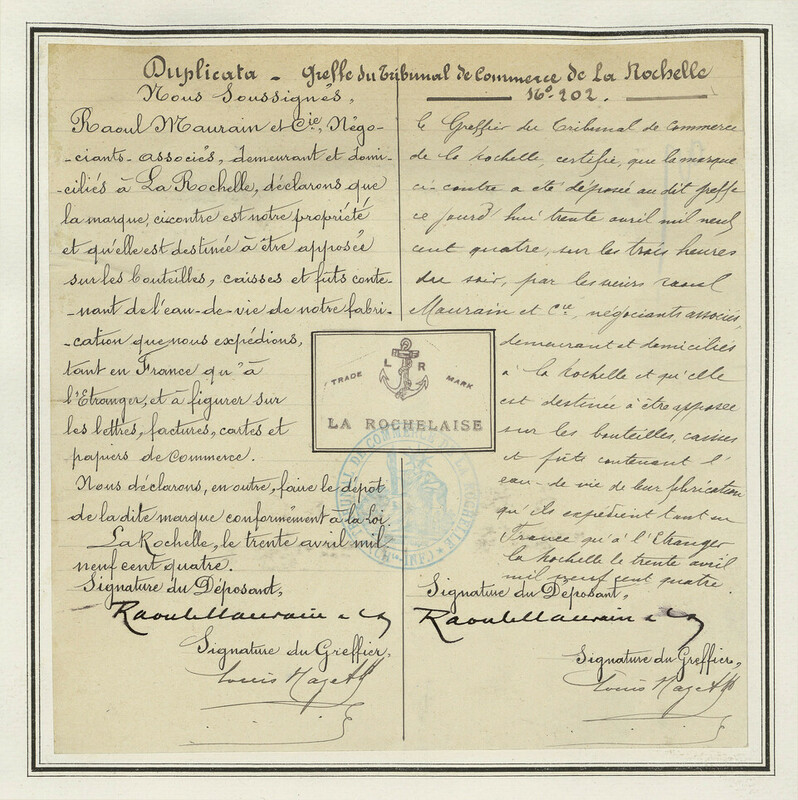 Duplicata - Greffe du Tribunal de Commerce de La Rochelle
Nº 202.
Nous Soussignés,
Raoul Maurain et Cie, Négo-
-ciants-associés, demeurant et domi-
-ciliés à La Rochelle, déclarons que
la marque, ci contre est notre propriété
et qu'elle est destinée à être apposée
sur les bouteilles, caisses et fûts conte-
-nant de l'eau-de-vie de notre fabri-
-cation que nous expédions,
tant en France qu'à
l'Etranger, et à figurer sur
les lettres, factures, cartes et
papiers de commerce.
Nous déclarons, en outre, faire le dépôt
de la dite marque conformément à la loi.
La Rochelle, le trente avril mil
neuf cent quatre.
Signature du Déposant,
Raoul Maurain & Cie
Signature du Greffier,
Louis
TRADE L R MARK
LA ROCHELAISE
TRIBUNAL DE COMMERCE DE LA ROCHELLE
le Greffier du Tribunal de commerce
de la Rochelle, certifie, que la marque
ci-contre a été déposée au dit greffe
ce jourd'hui trente avril mil neuf
cent quatre, sur les trois heures
du soir, par les sieurs Raoul
Maurain et Cie, négociants associés,
demeurant et domiciliés
à la Rochelle et qu'elle
est destinée à être apposée
sur les bouteilles, caisses
et fûts contenant l'
eau-de-vie de leur fabrication
qu'ils expédient tant en
France qu'à l'Etranger
la Rochelle le trente avril
mil neuf cent quatre.
Signature du Déposant,
Raoul Maurain & Cie
Signature du Greffier,
Louis